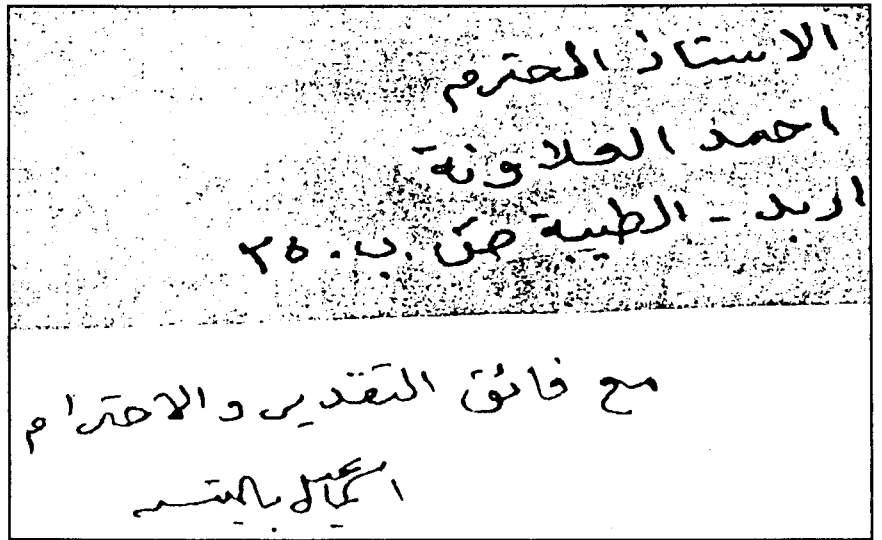 الاستاذ المحترم
احمد العلاونة
اربد - الطيبة ص.ب. ٣٥
مع فائق التقدير والاحترام
اسماعيل باليتسه